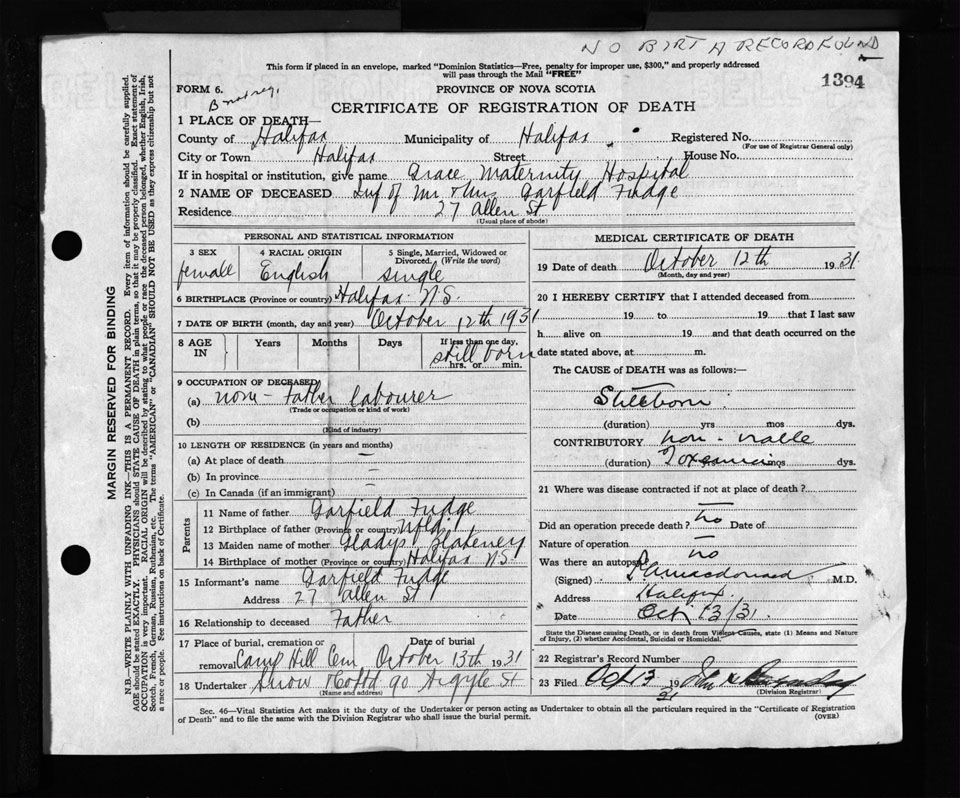 NO BIRTH RECORD FOUND
This form if placed in an envelope, marked "Dominion Statistics—Free, penalty for improper use, $300," and properly addressed
will pass through the Mail "FREE"
1394
FORM 6.
PROVINCE OF NOVA SCOTIA
CERTIFICATE OF REGISTRATION OF DEATH
1 PLACE OF DEATH—
County of Halifax Municipality of Halifax Registered No.
(For use of Registrar General only)
City or Town Halifax Street House No.
If in hospital or institution, give name Grace Maternity Hospital
2 NAME OF DECEASED Inf of Mr & Mrs Garfield Fudge
Residence 27 Allen St
(Usual place of abode)
MARGIN RESERVED FOR BINDING
N.B.—WRITE PLAINLY WITH UNFADING INK—THIS IS A PERMANENT RECORD. Every item of information should be carefully supplied.
AGE should be stated EXACTLY. PHYSICIANS should STATE CAUSE OF DEATH in plain terms, so that it may be properly classified. Exact statement of
OCCUPATION is very important. RACIAL ORIGIN will be described by stating to what people or race the deceased person belonged, whether English, Irish,
Scotch, French, German, Russian, Ruthenian, etc. The terms "AMERICAN" or "CANADIAN" SHOULD NOT BE USED as they express citizenship but not
a race or people. See instructions on back of Certificate.
PERSONAL AND STATISTICAL INFORMATION
3 SEX 4 RACIAL ORIGIN 5 Single, Married, Widowed or
Divorced. (Write the word)
female English single
6 BIRTHPLACE (Province or country) Halifax N.S.
7 DATE OF BIRTH (month, day and year) October 12th 1931
8 AGE IN Years Months Days If less than one day,
still born
hrs. or min.
9 OCCUPATION OF DECEASED
(a) none - Father labourer
(Trade or occupation or kind of work)
(b)
(Kind of industry)
10 LENGTH OF RESIDENCE (in years and months)
(a) At place of death —
(b) In province —
(c) In Canada (if an immigrant) —
Parents
11 Name of father Garfield Fudge
12 Birthplace of father (Province or country) Nfld.
13 Maiden name of mother Gladys Blakeney
14 Birthplace of mother (Province or country) Halifax N.S.
15 Informant's name Garfield Fudge
Address 27 Allen St
16 Relationship to deceased Father
17 Place of burial, cremation or Date of burial
removal Camp Hill Cem. October 13th 1931
18 Undertaker Snow & Co Ltd 90 Argyle St
(Name and address)
MEDICAL CERTIFICATE OF DEATH
19 Date of death October 12th 1931
(Month, day and year)
20 I HEREBY CERTIFY that I attended deceased from
19 to 19 that I last saw
h alive on 19 and that death occurred on the
date stated above, at m.
The CAUSE of DEATH was as follows:—
Stillborn
(duration) yrs mos dys.
CONTRIBUTORY
(duration) Toxemia mos dys.
21 Where was disease contracted if not at place of death?
—
Did an operation precede death? no Date of
Nature of operation —
Was there an autopsy no
(Signed) M.D.
Address Halifax.
Date Oct 13/31.
State the Disease causing Death, or in death from Violent Causes, state (1) Means and Nature
of Injury, (2) whether Accidental, Suicidal or Homicidal.
22 Registrar's Record Number
23 Filed Oct 13 1931 John
(Division Registrar)
Sec. 46—Vital Statistics Act makes it the duty of the Undertaker or person acting as Undertaker to obtain all the particulars required in the "Certificate of Registration
of Death" and to file the same with the Division Registrar who shall issue the burial permit.
(OVER)